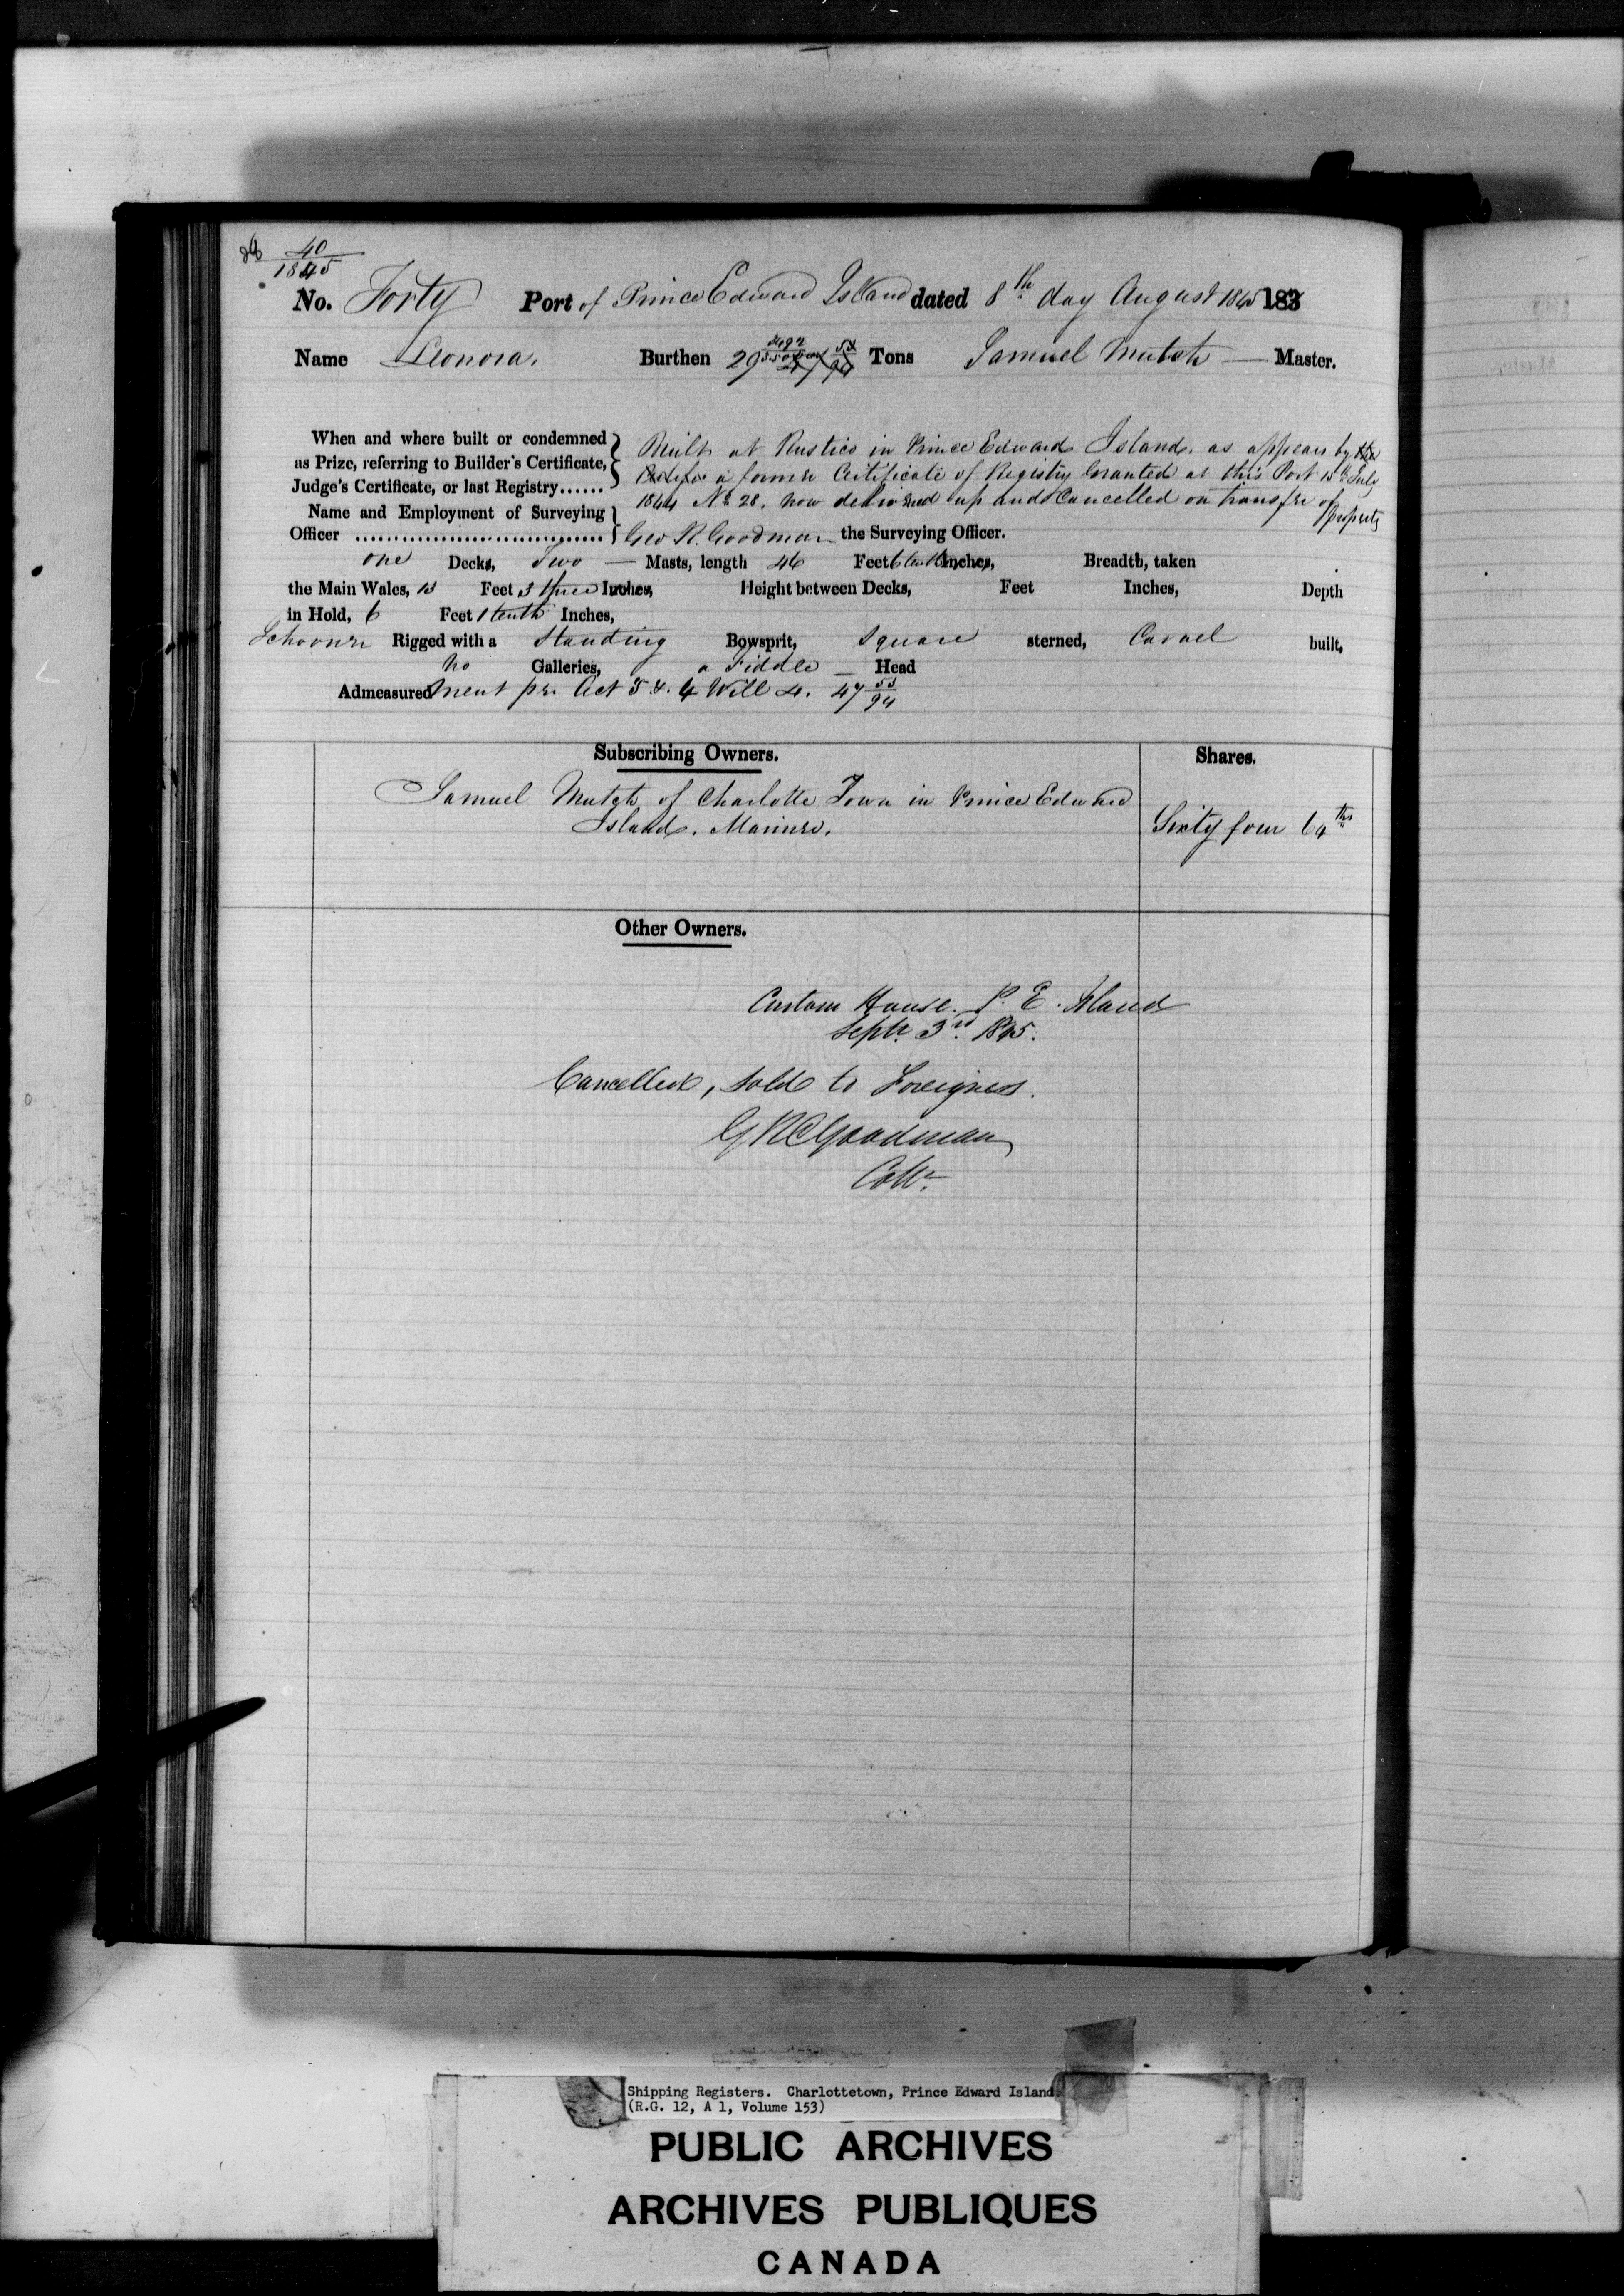 40
1845
No. Forty Port of Prince Edward Island dated 8th day August 1845 183
Name Leonora. Burthen 29 Tons Samuel Mutch — Master.
When and where built or condemned as Prize, referring to Builder's Certificate, Judge's Certificate, or last Registry......
Built at Rustico in Prince Edward Island, as appears by
a former Certificate of Registry Granted at this Port 15th July
1844 No 28. now delivered up and Cancelled on transfer of property
Name and Employment of Surveying Officer ................................. Geo R. Goodman the Surveying Officer.
one Decks, Two — Masts, length 46 Feet 6 tenths Inches, Breadth, taken
the Main Wales, 13 Feet 3 three Inches, Height between Decks, Feet Inches, Depth
in Hold, 6 Feet 1 tenth Inches,
Schooner Rigged with a Standing Bowsprit, Square sterned, Carvel built,
No Galleries, a Fiddle — Head
Admeasurement pr. Act 3 & 4 Will 4. 47 53/94
Subscribing Owners. Shares.
Samuel Mutch of Charlotte Town in Prince Edward
Island. Mariner. Sixty four 64ths
Other Owners.
Custom House. P. E. Island
Septr. 3rd. 1845.
Cancelled, sold to Foreigners.
G R Goodman
Collr.
Shipping Registers. Charlottetown, Prince Edward Island
(R.G. 12, A 1, Volume 153)
PUBLIC ARCHIVES
ARCHIVES PUBLIQUES
CANADA